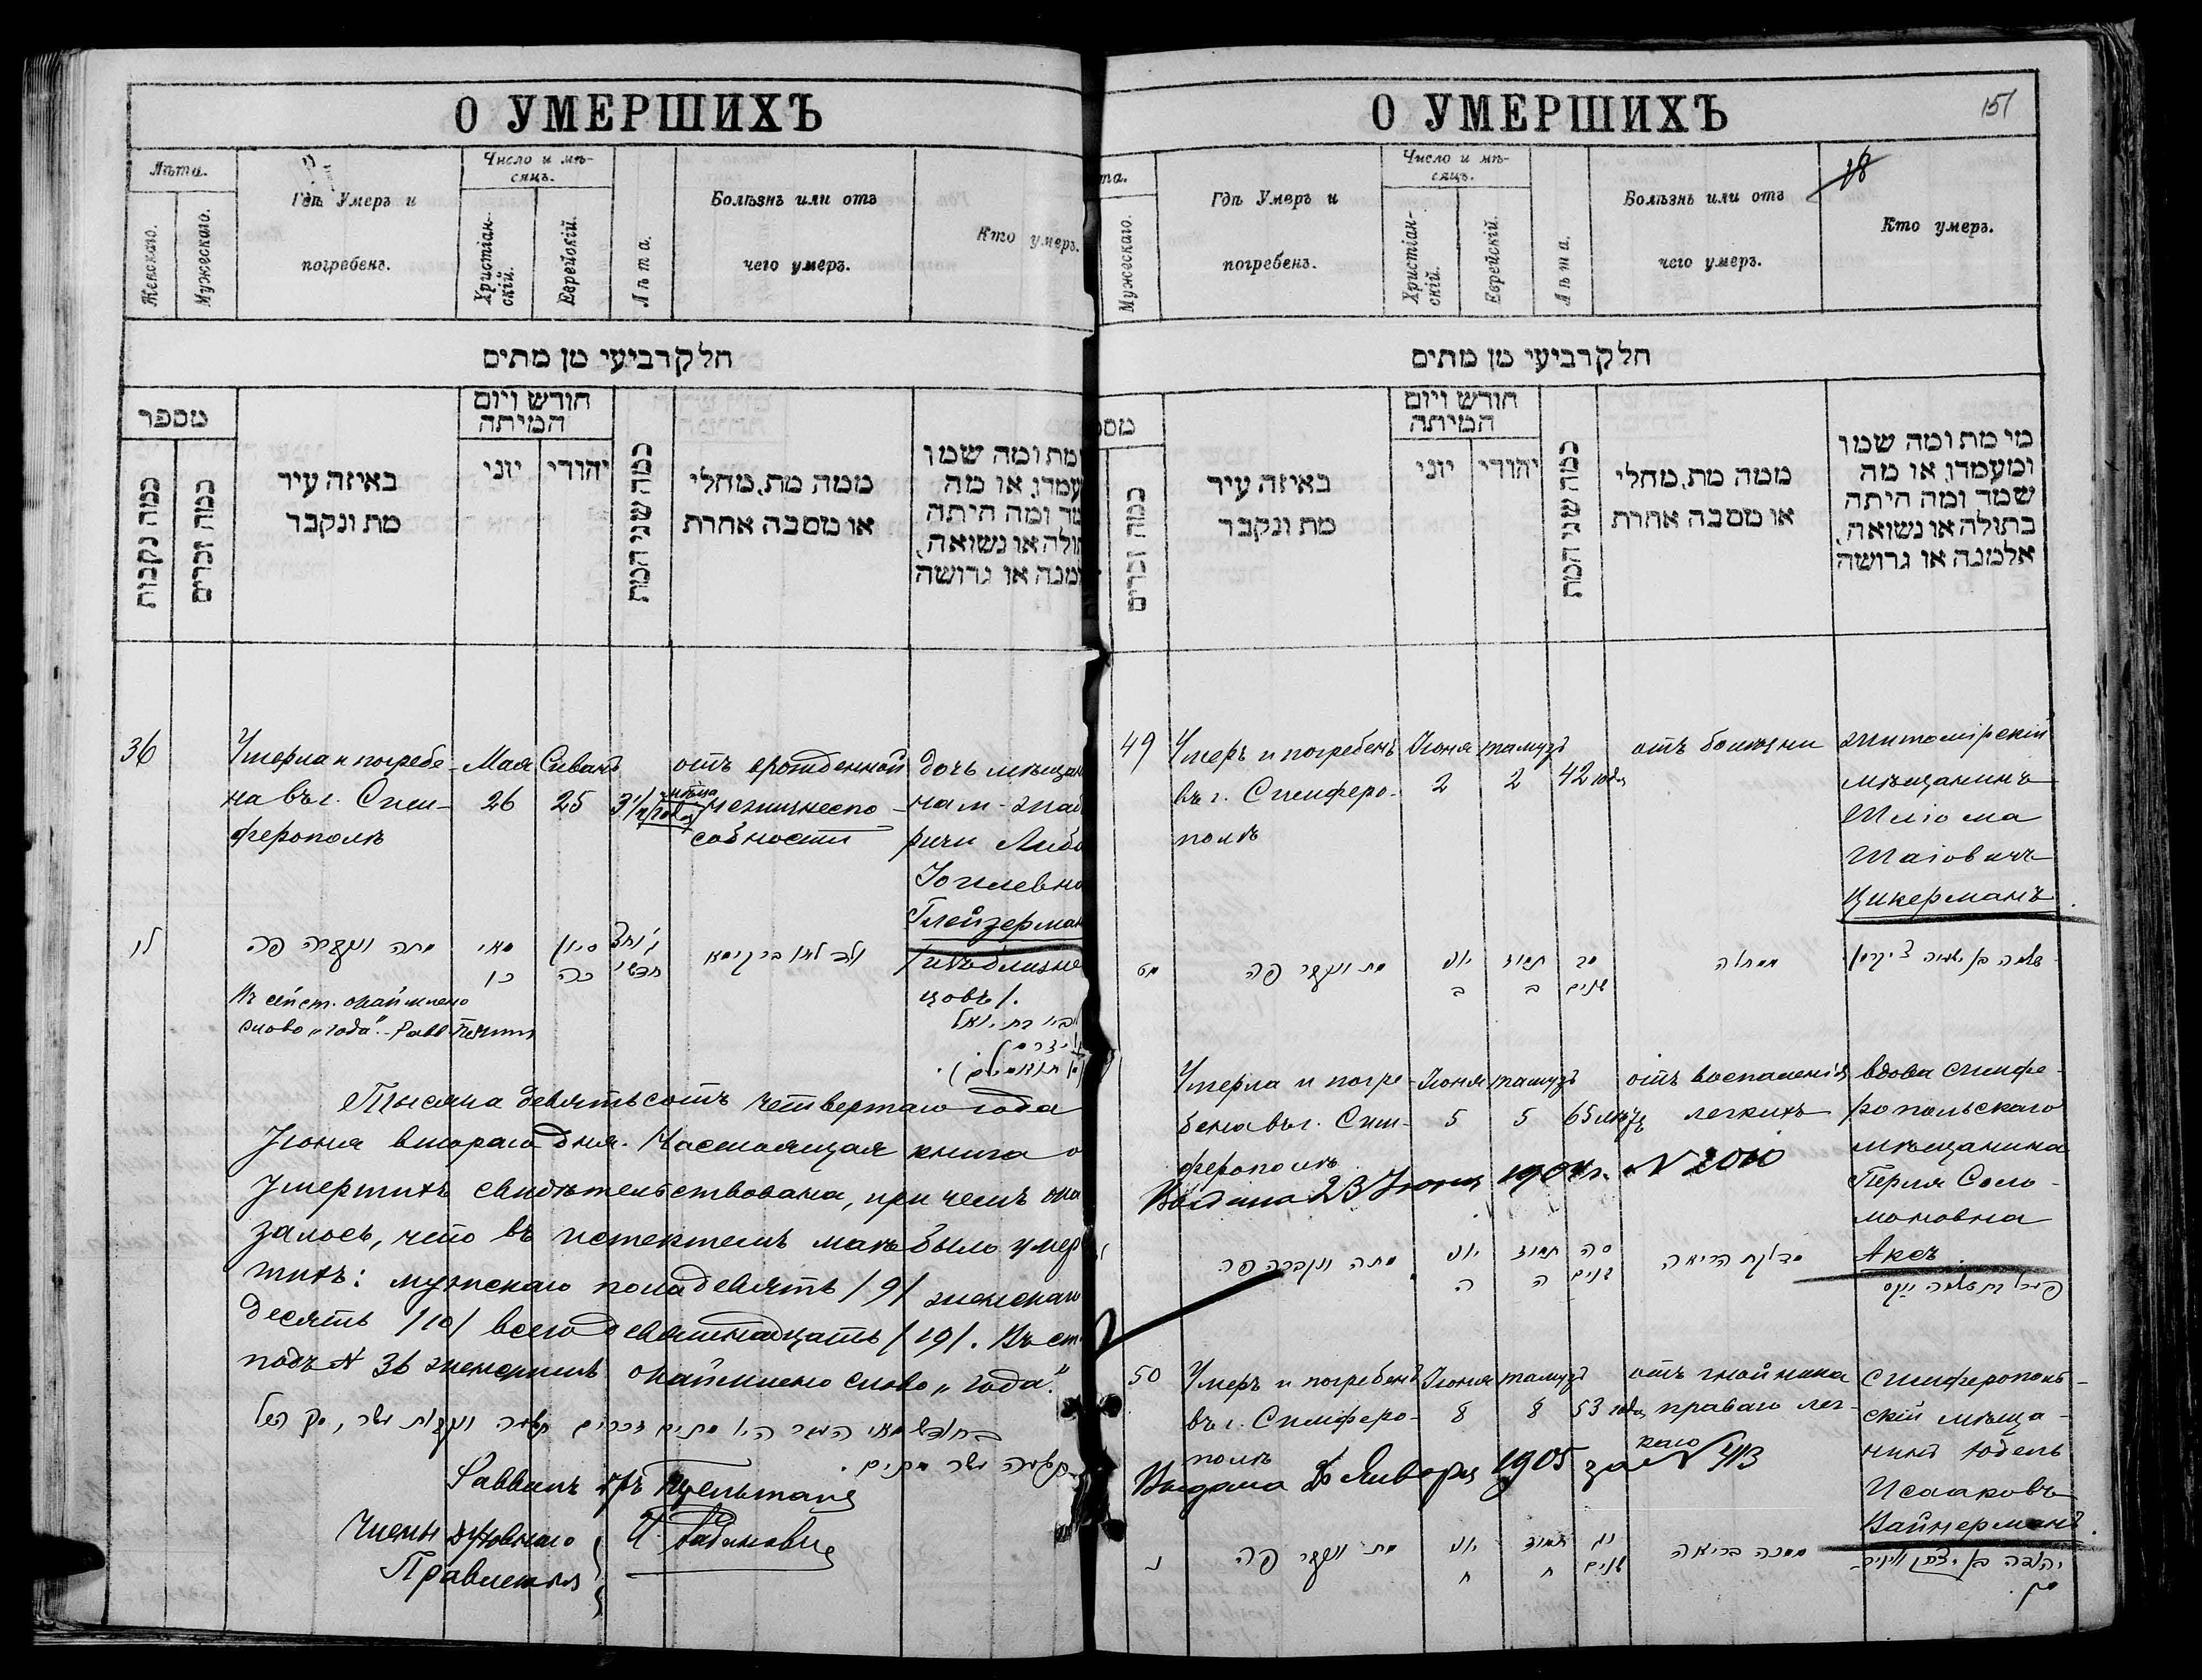 О УМЕРШИХЪ
Лѣта.
Женскаго.
Мужескаго.
Гдѣ Умеръ и
погребенъ.
Число и мѣ-
сяцъ.
Христіан-
скій.
Еврейскій.
Лѣта.
Болѣзнь или отъ
чего умеръ.
Кто умеръ.
חלק רביעי מן מתים
מספר
כמה נקבות
כמה זכרים
באיזה עיר
מת ונקבר
חודש ויום
המיתה
יוני
יהודי
כמה שני המת
ממה מת, מחלי
או מסבה אחרת
מת ומה שמו
עמדו, או מה
ומה היתה
או נשואה,
או גרושה
36
Умерла и погребе-
на въ г. Сим-
ферополѣ
Мая
26
Сиванъ
25
3 1/2
отъ врожденной
жизнеспо-
собности
дочь мѣщан
на м.
ричи Либа
Іоилевна
Глейзерман
/изъ близне
цовъ/.
לו
מתה ונקברה פה
מאי
כו
סיון
כה
חדשי
בת יואל
Въ сей ст.
слово „года". Равв.
Тысяча девятьсотъ четвертаго года
Іюня второго дня. Настоящая книга о
умершихъ свидѣтельствована, при чемъ ока
залось, что въ истекшемъ маѣ было умер
шихъ: мужскаго пола девять /9/ женскаго
десять /10/ всего девятнадцать /19/. Въ ст.
подъ № 36 женскимъ окаймлено слово „года".
Раввинъ
Члены Духовнаго
Правленія
О УМЕРШИХЪ
151
18
та.
Мужескаго.
Гдѣ Умеръ и
погребенъ.
Число и мѣ-
сяцъ.
Христіан-
скій.
Еврейскій.
Лѣта.
Болѣзнь или отъ
чего умеръ.
Кто умеръ.
חלק רביעי מן מתים
מספ
כמה זכרים
באיזה עיר
מת ונקבר
חודש ויום
המיתה
יוני
יהודי
כמה שני המת
ממה מת, מחלי
או מסבה אחרת
מי מת ומה שמו
ומעמדו, או מה
שמה ומה היתה
בתולה או נשואה,
אלמנה או גרושה
49
Умеръ и погребенъ
въ г. Симферо-
полѣ
Іюня
2
тамузъ
2
42 года
отъ болѣзни
житомірскій
мѣщанинъ
Шлiома
Шаiовичъ
Цикерманъ.
מט
מת ונקבר פה
יוני
ב
תמוז
ב
מב
שנים
ממחלה
Умерла и погре-
бена въ г. Сим-
ферополѣ
Іюня
5
тамузъ
5
65 лѣтъ
отъ воспаленія
легкихъ
вдова симфе-
ропольскаго
мѣщанина
Перля Соло-
моновна
Аксъ.
Выдана 23 Іюня 1904 г. №
מתה ונקברה פה
יוני
ה
תמוז
ה
סה
שנים
מדלקת הריאה
50
Умеръ и погребенъ
въ г. Симферо-
полѣ
Іюня
8
тамузъ
8
53 года
отъ гнойника
праваго лег-
каго
Симферополь-
скій мѣща-
нинъ Юдель
Исааковъ
Вайнерманъ.
Выдана Января 1905 за № 413
נ
מת ונקבר פה
יוני
ח
תמוז
ח
נג
שנים
ממכה בריאה
יהודה בן יצחק